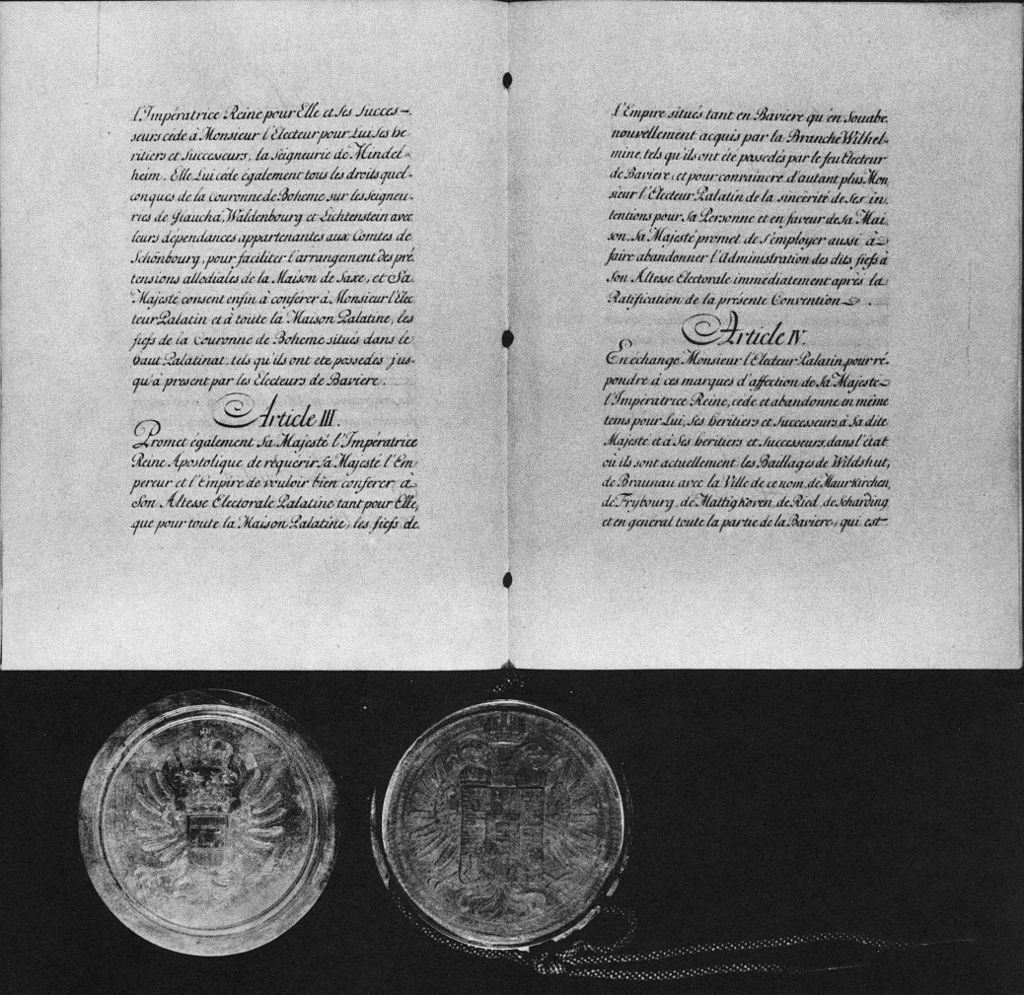 l'Impératrice Reine pour Elle et Ses Succes-
seurs cède à Monsieur l'Electeur pour Lui Ses he-
ritiers et Successeurs, la Seigneurie de Mindel-
heim. Elle Lui cède également tous les droits quel-
conques de la Couronne de Boheme sur les Seigneu-
ries de Glaucha, Waldenbourg et Lichtenstein avec
leurs dépendances appartenantes aux Comtes de
Schönbourg, pour faciliter l'arrangement des pré-
tensions allodiales de la Maison de Saxe, et Sa
Majesté consent enfin à conferer à Monsieur l'Elec-
teur Palatin et à toute la Maison Palatine, les
fiefs de la Couronne de Boheme situés dans le
haut Palatinat, tels qu'ils ont eté possedés jus-
qu'à present par les Electeurs de Baviere.
Article III.
Promet également Sa Majesté l'Impératrice
Reine Apostolique de réquérir Sa Majesté l'Em-
pereur et l'Empire de vouloir bien conferer à
Son Altesse Electorale Palatine tant pour Elle,
que pour toute la Maison Palatine, les fiefs de
l'Empire situés tant en Baviere qu'en Souabe
nouvellement acquis par la Branche Wilhel-
mine, tels qu'ils ont été possedés par le feu Electeur
de Baviere; et pour convaincre d'autant plus Mon
sieur l'Electeur Palatin de la sincérité de Ses in-
tentions pour Sa Personne et en faveur de Sa Mai-
son, Sa Majesté promet de s'employer aussi à
faire abandonner l'Administration des dits fiefs à
Son Altesse Electorale immédiatement après la
Ratification de la présente Convention.
Article IV.
En echange Monsieur l'Electeur Palatin, pour ré-
pondre à ces marques d'affection de Sa Majesté
l'Impératrice Reine, cède et abandonne en même
tems pour Lui, Ses heritiers et Successeurs, à Sa dite
Majesté et à Ses heritiers et Successeurs, dans l'état
où ils sont actuellement les Baillages de Wildshut,
de Braunau avec la Ville de ce nom, de Maurkirchen,
de Frybourg, de Mattigkoven, de Ried, de Scharding
et en general toute la partie de la Baviere, qui est